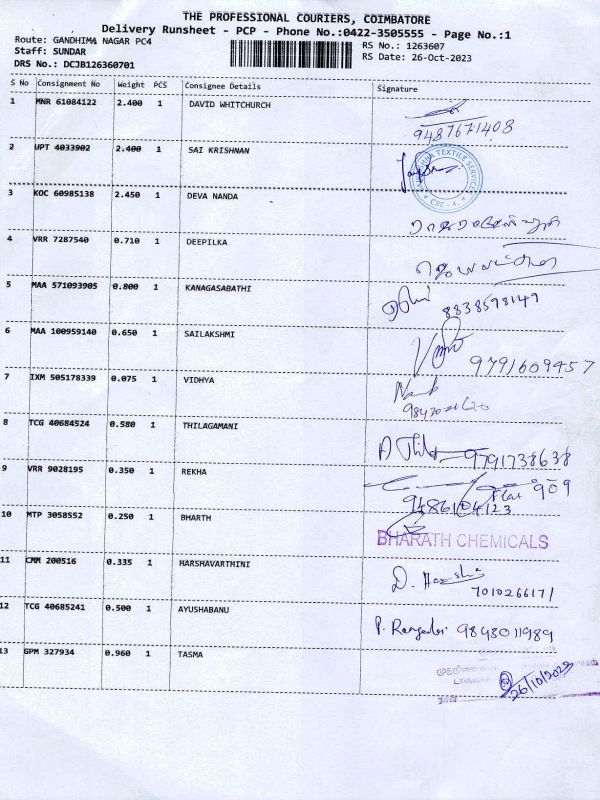 THE PROFESSIONAL COURIERS, COIMBATORE
Delivery Runsheet - PCP - Phone No.:0422-3505555 - Page No.:1
Route: GANDHIMA NAGAR PC4
RS No.: 1263607
Staff: SUNDAR
RS Date: 26-Oct-2023
DRS No.: DCJB126360701
S No Consignment No Weight PCS Consignee Details Signature
1 MNR 61084122 2.400 1 DAVID WHITCHURCH
9487671408
2 UPT 4033902 2.400 1 SAI KRISHNAN
TEXTILE SERVICE
CBE - 4.
3 KOC 60985138 2.450 1 DEVA NANDA
4 VRR 7287540 0.710 1 DEEPILKA
5 MAA 571093905 0.800 1 KANAGASABATHI
8838598149
6 MAA 100959140 0.650 1 SAILAKSHMI
9791609457
7 IXM 505178339 0.075 1 VIDHYA
8 TCG 40684524 0.580 1 THILAGAMANI
9791738638
9 VRR 9028195 0.350 1 REKHA
Flat 909
9486104123
10 MTP 3058552 0.250 1 BHARTH
BHARATH CHEMICALS
11 CMM 200516 0.335 1 HARSHAVARTHINI
7010266171
12 TCG 40685241 0.500 1 AYUSHABANU
9843011989
13 GPM 327934 0.960 1 TASMA
26/10/2023